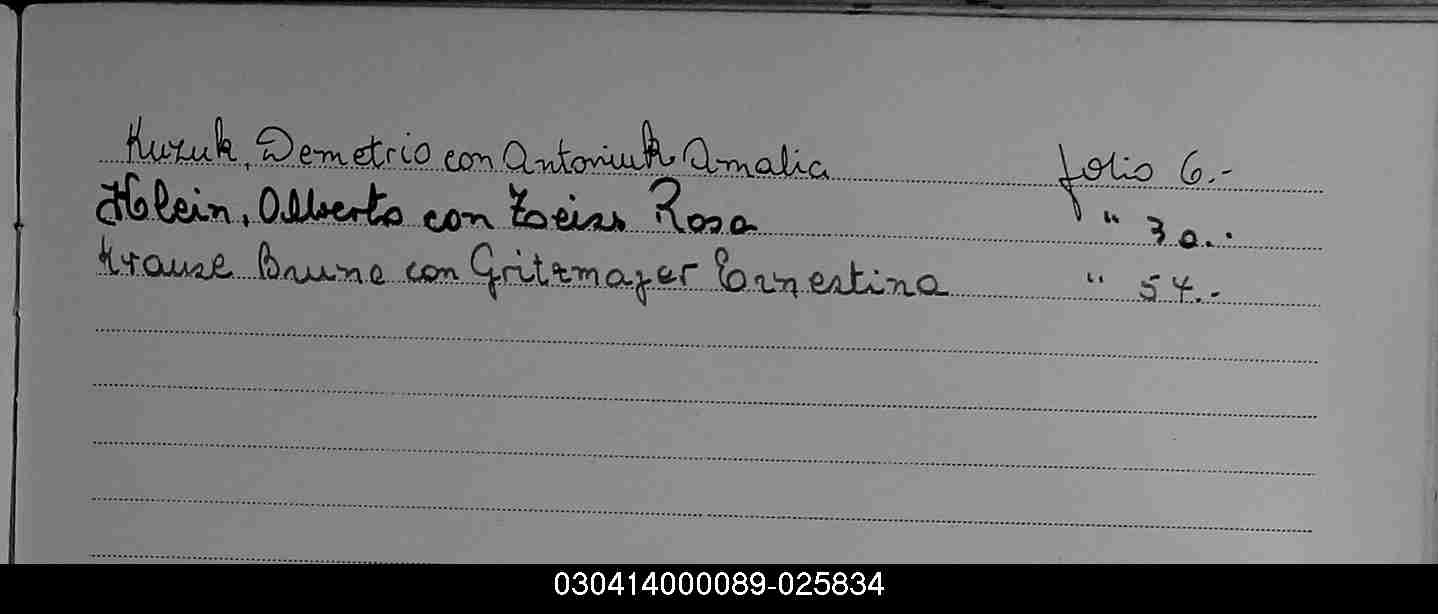 Kuzuk, Demetrio con Antoniuk Amalia folio 6.-
Klein, Alberto con Zeiss Rosa " 30.-
Krause Bruno con Gritzmajer Ernestina " 54.-
030414000089-025834